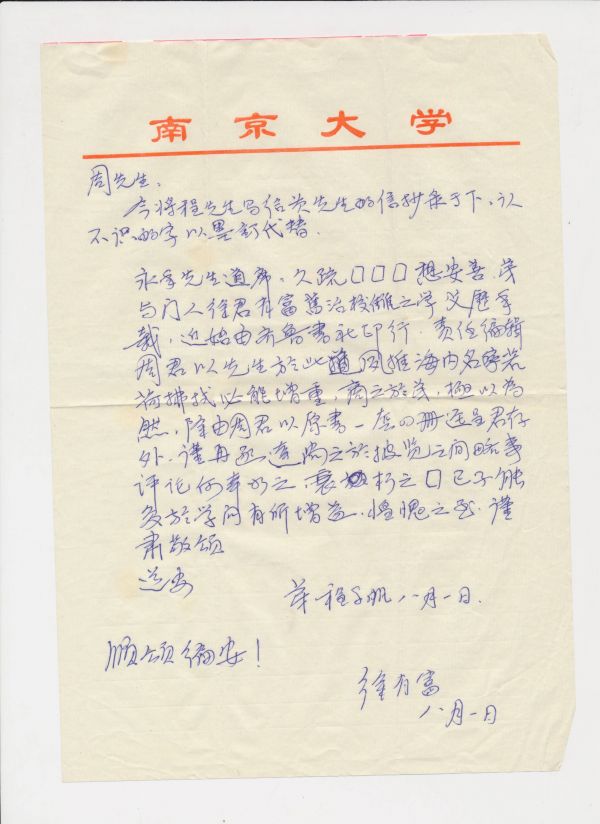 南京大学
周先生：
今将程先生写给黄先生的信抄录于下，认
不识的字以墨钉代替。
永年先生道席，久疏□□□想安善。
与门人徐君有富笃治校雠之学 历年
载，近始由齐鲁书社印行，责任编辑
周君以先生於此道 海内名家若
荷拂拭必能增重，商之於，极以为
然，除由周君以原书一 四册迳呈君存
外，谨再 於披览之间略事
评论何幸如之 朽之□已不能
复於学问有所增益，惶愧之至，谨
肃敬颂
道安
弟程千帆 八月一日.
顺颂编安！
徐有富
八月一日